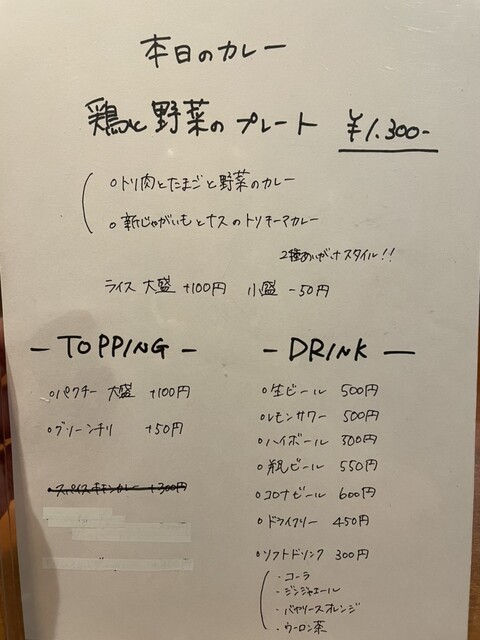 本日のカレー
鶏と野菜のプレート ¥1.300-
○トリ肉とたまごと野菜のカレー
○新じゃがいもとナスのトリキーマカレー
2種あいがけスタイル!!
ライス 大盛 +100円 小盛 -50円
- TOPPING -
○パクチー 大盛 +100円
○グリーンチリ +50円
○スパイスチキンカレー +300円
- DRINK -
○生ビール 500円
○レモンサワー 500円
○ハイボール 300円
○瓶ビール 550円
○コロナビール 600円
○ドライゼロ 450円
○ソフトドリンク 300円
・コーラ
・ジンジャエール
・バヤリースオレンジ
・ウーロン茶